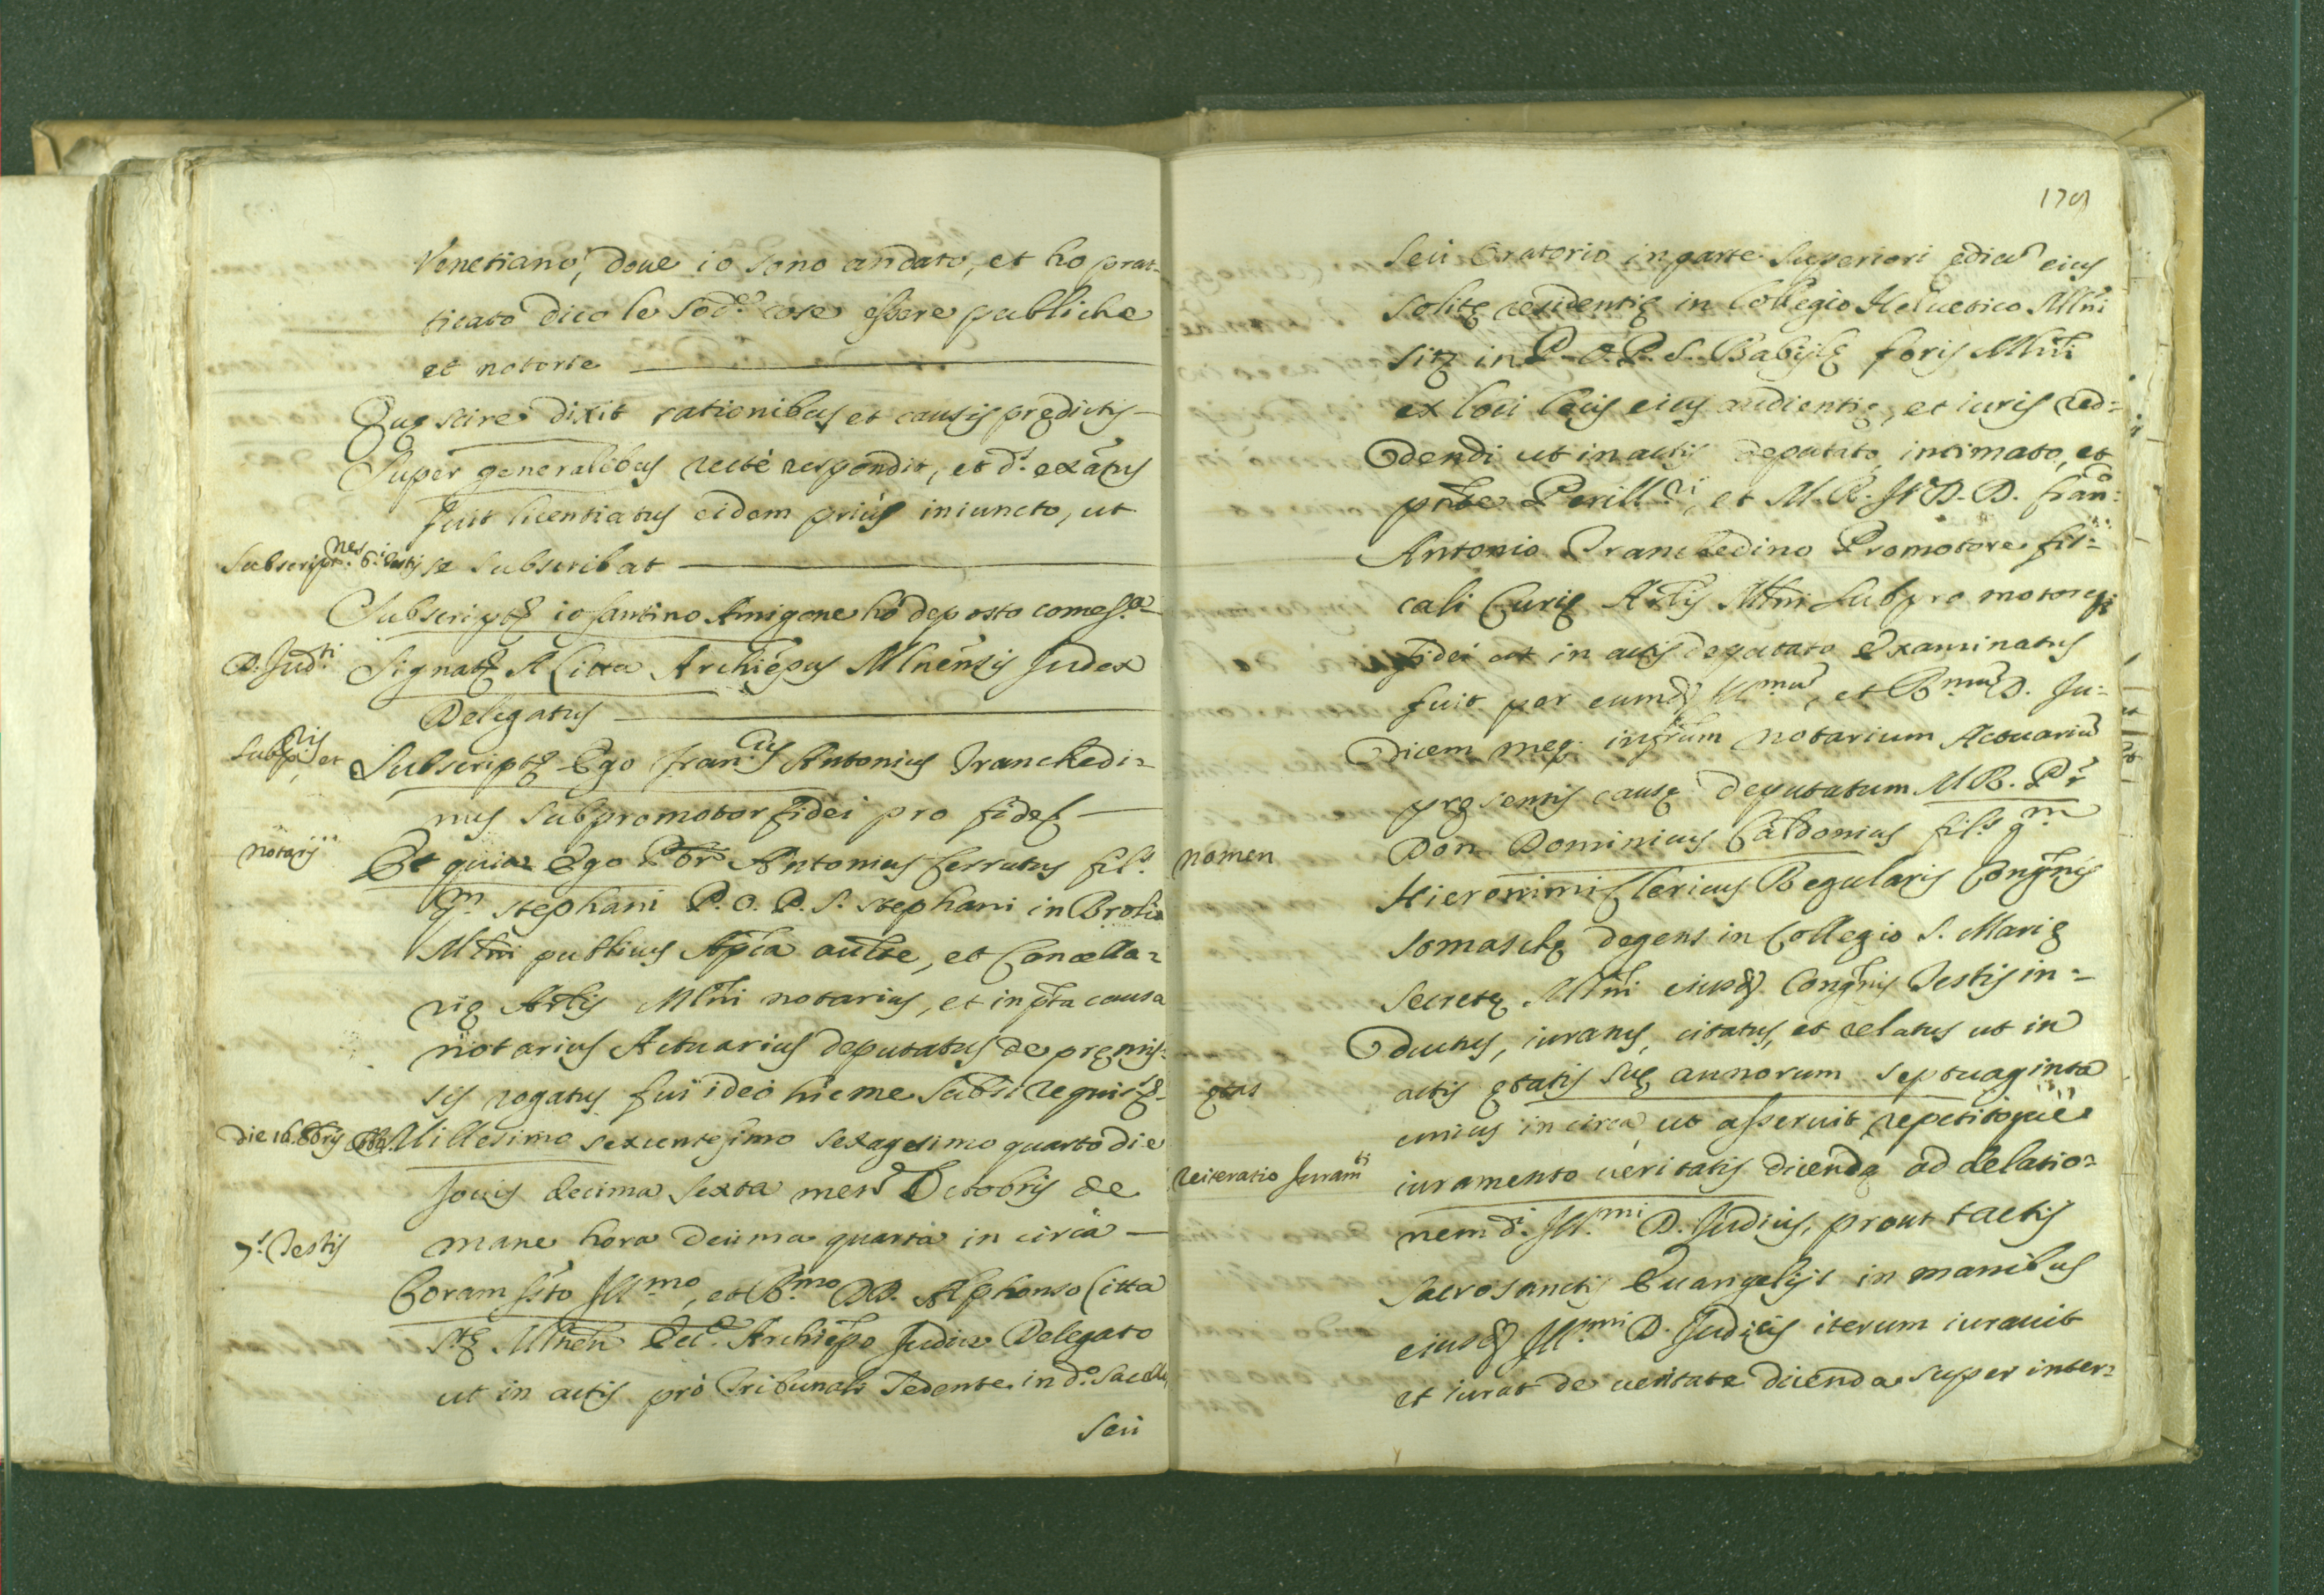 Venetiano, doue io sono andato, et ho prat-
ticato dico le sod.e cose essere publiche
et notorie
Quę scire dixit rationibus et causis prędictis
Super generalibus rectè respondit, et d.s exātus
fuit licentiatus eidem priùs iniuncto, ut
Subscript.nes 6.i testis se subscribat
Subscriptę io santino Amigone hò deposto come s.a
D. Jud.ti Signatę A Litta Archiēpus Mlnēnsis Judex
Delegatus
Subp.ris et Subscriptę Ego fran.cus Antonius Tranchedi=
nus subpromotor fidei pro fide
notarij Et quia Ego Antonius Cerrutus fil.s
q.m stephani P. O. P. S. stephani in Brolio
Mlni publicus Aplica aucte, et Cancella=
rię Artis Mlni notarius, et in pñta causa
notarius Actuarius deputatus de pręmis=
sis rogatus fui ideò hic me subsi requisitę
Die 16. 8bris 1664. Millesimo sexcentesimo sexagesimo quarto die
Jouis decima sexta mens Octobris de
mane hora decima quarta in circa
7.s Testis
Coram sto Ill.mo, et R.mo DD. Alphonso Litta
Stę Mlnen Ecc.e Archiēpo Judice Delegato
ut in actis prò Tribunali Sedente in d.o sacello
seù
179
seù Oratorio in parte superiori ędiū eius
solitę residentię in Collegio Heluetico Mlni
sitę in P. O. P. S. Babilę foris Mlni
ex loci locis eius audientię, et iuris red=
dendi ut in actis deputato, intimato, et
pñte Perill.ri, et M. R. J. V. D. D. fran.co
Antonio Tranchedino Promotore fis=
cali Curię Artis Mlni subpromotoreq;
fidei ut in actis deputato Examinatus
fuit per eumd Ill.mu, et R.mu D. Ju=
dicem meq; infrum notarium Actuariu
pręsentis causę deputatum M. R. Pr
nomen Don Dominicus Caldonius fil.s q.m
Hieronimi Clericus Regularis Congñis
somaschę degens in Collegio S. Marię
secretę Mlni eiusd Congñis Testis in=
ductus, iuratus, citatus, et relatus ut in
ętas actis ętatis suę annorum septuaginta
unius in circa ut asseruit repetitoque
reiteratio Juram.ti iuramento ueritatis dicendę ad delatio=
nem d.i Ill.mi D. Judicis, prout tactis
sacrosanctis Euangelijs in manibus
eiusd Ill.mi D. Judicis iterum iurauit
et iurat de ueritate dicenda super inter=